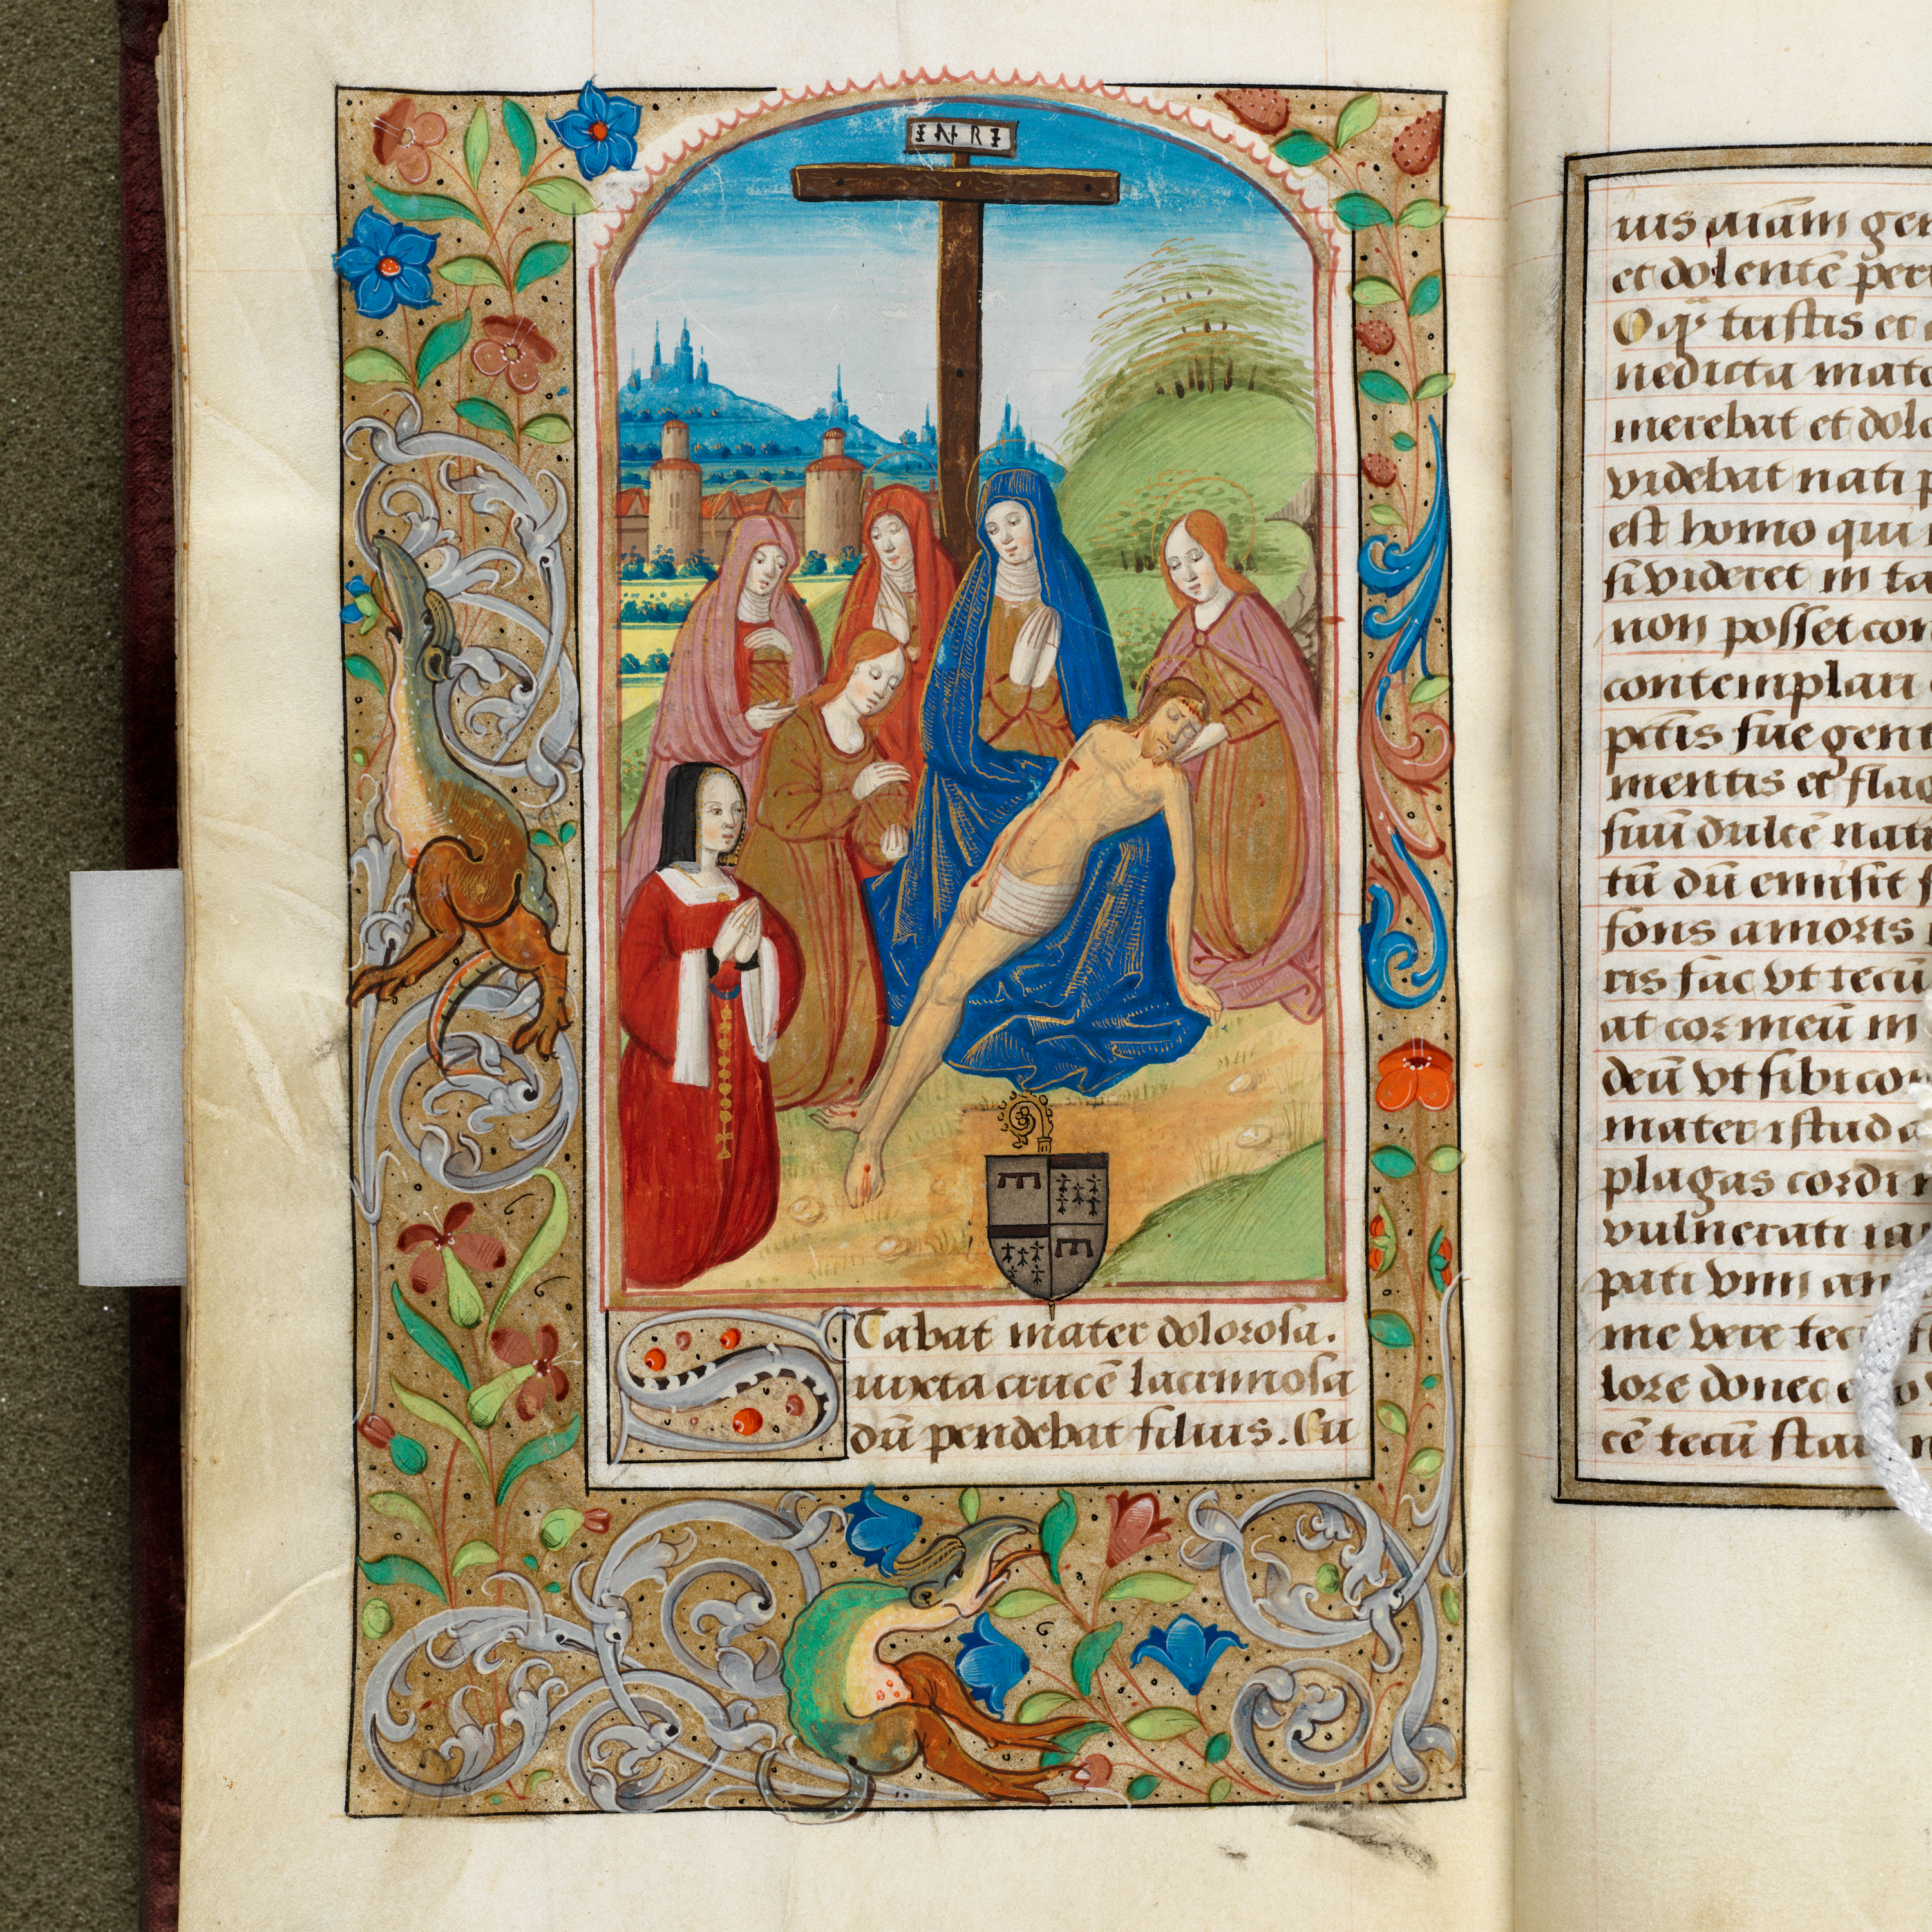 INRI
Stabat mater dolorosa.
iuxta crucē lacrimosa
dū pendebat filius. Cu
ius aīam gen
et dolentē per
O qͣ tristis et
nedicta mate
merebat et dole
videbat nati p
est homo qui
si videret in ta
non posset con
contemplari
pctīs sue gent
mentis et flag
suū dulcē natu
tū dū emisit s
fons amoris
ris fac vt tecū
at cor meū in
deū vt sibi con
mater istud a
plagas cordi
vulnerati
pati vnū
me vere tecū
lore donec
cē tecū star